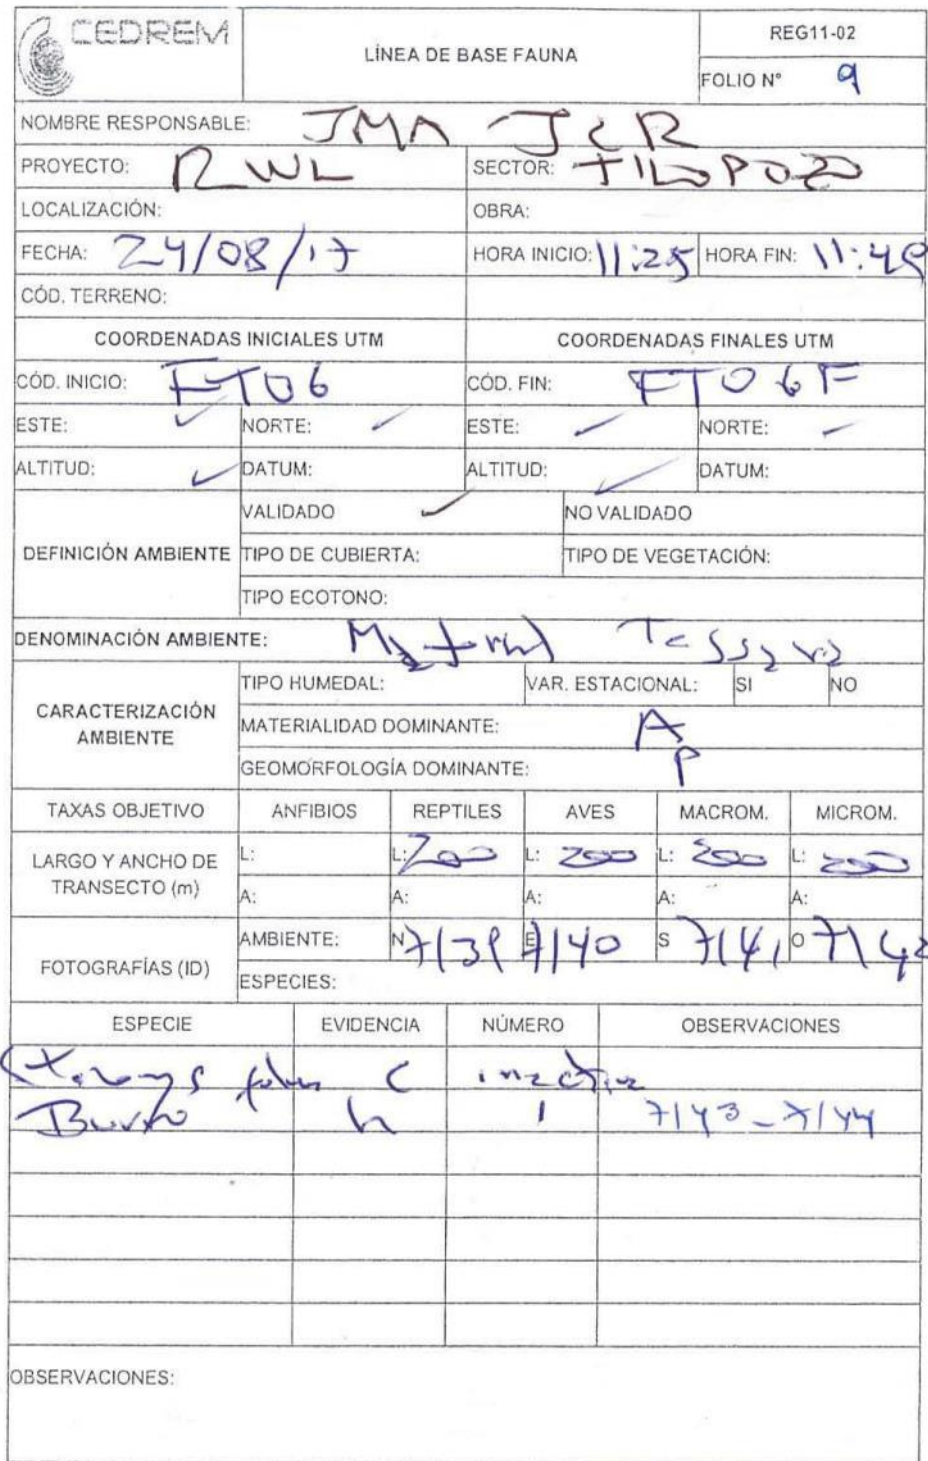 CEDREM
LÍNEA DE BASE FAUNA
REG11-02
FOLIO N° 9
NOMBRE RESPONSABLE: JMA JCR
PROYECTO: RWL SECTOR: TILOPOZO
LOCALIZACIÓN: OBRA:
FECHA: 24/08/17 HORA INICIO: 11:25 HORA FIN: 11:49
CÓD. TERRENO:
COORDENADAS INICIALES UTM COORDENADAS FINALES UTM
CÓD. INICIO: FT06 CÓD. FIN: FT06F
ESTE: ✓ NORTE: ✓ ESTE: ✓ NORTE: ✓
ALTITUD: ✓ DATUM: ALTITUD: ✓ DATUM:
DEFINICIÓN AMBIENTE
VALIDADO ✓ NO VALIDADO
TIPO DE CUBIERTA: TIPO DE VEGETACIÓN:
TIPO ECOTONO:
DENOMINACIÓN AMBIENTE: Matorral
CARACTERIZACIÓN AMBIENTE
TIPO HUMEDAL: VAR. ESTACIONAL: SI NO
MATERIALIDAD DOMINANTE: A
GEOMORFOLOGÍA DOMINANTE: P
TAXAS OBJETIVO ANFIBIOS REPTILES AVES MACROM. MICROM.
LARGO Y ANCHO DE TRANSECTO (m)
L: L: 200 L: 200 L: 200 L: 200
A: A: A: A: A:
FOTOGRAFÍAS (ID)
AMBIENTE: N 7/39 E 7/40 S 7/41 O 7/42
ESPECIES:
ESPECIE EVIDENCIA NÚMERO OBSERVACIONES
C inactiva
Burro h 1 7/43 - 7/44
OBSERVACIONES: